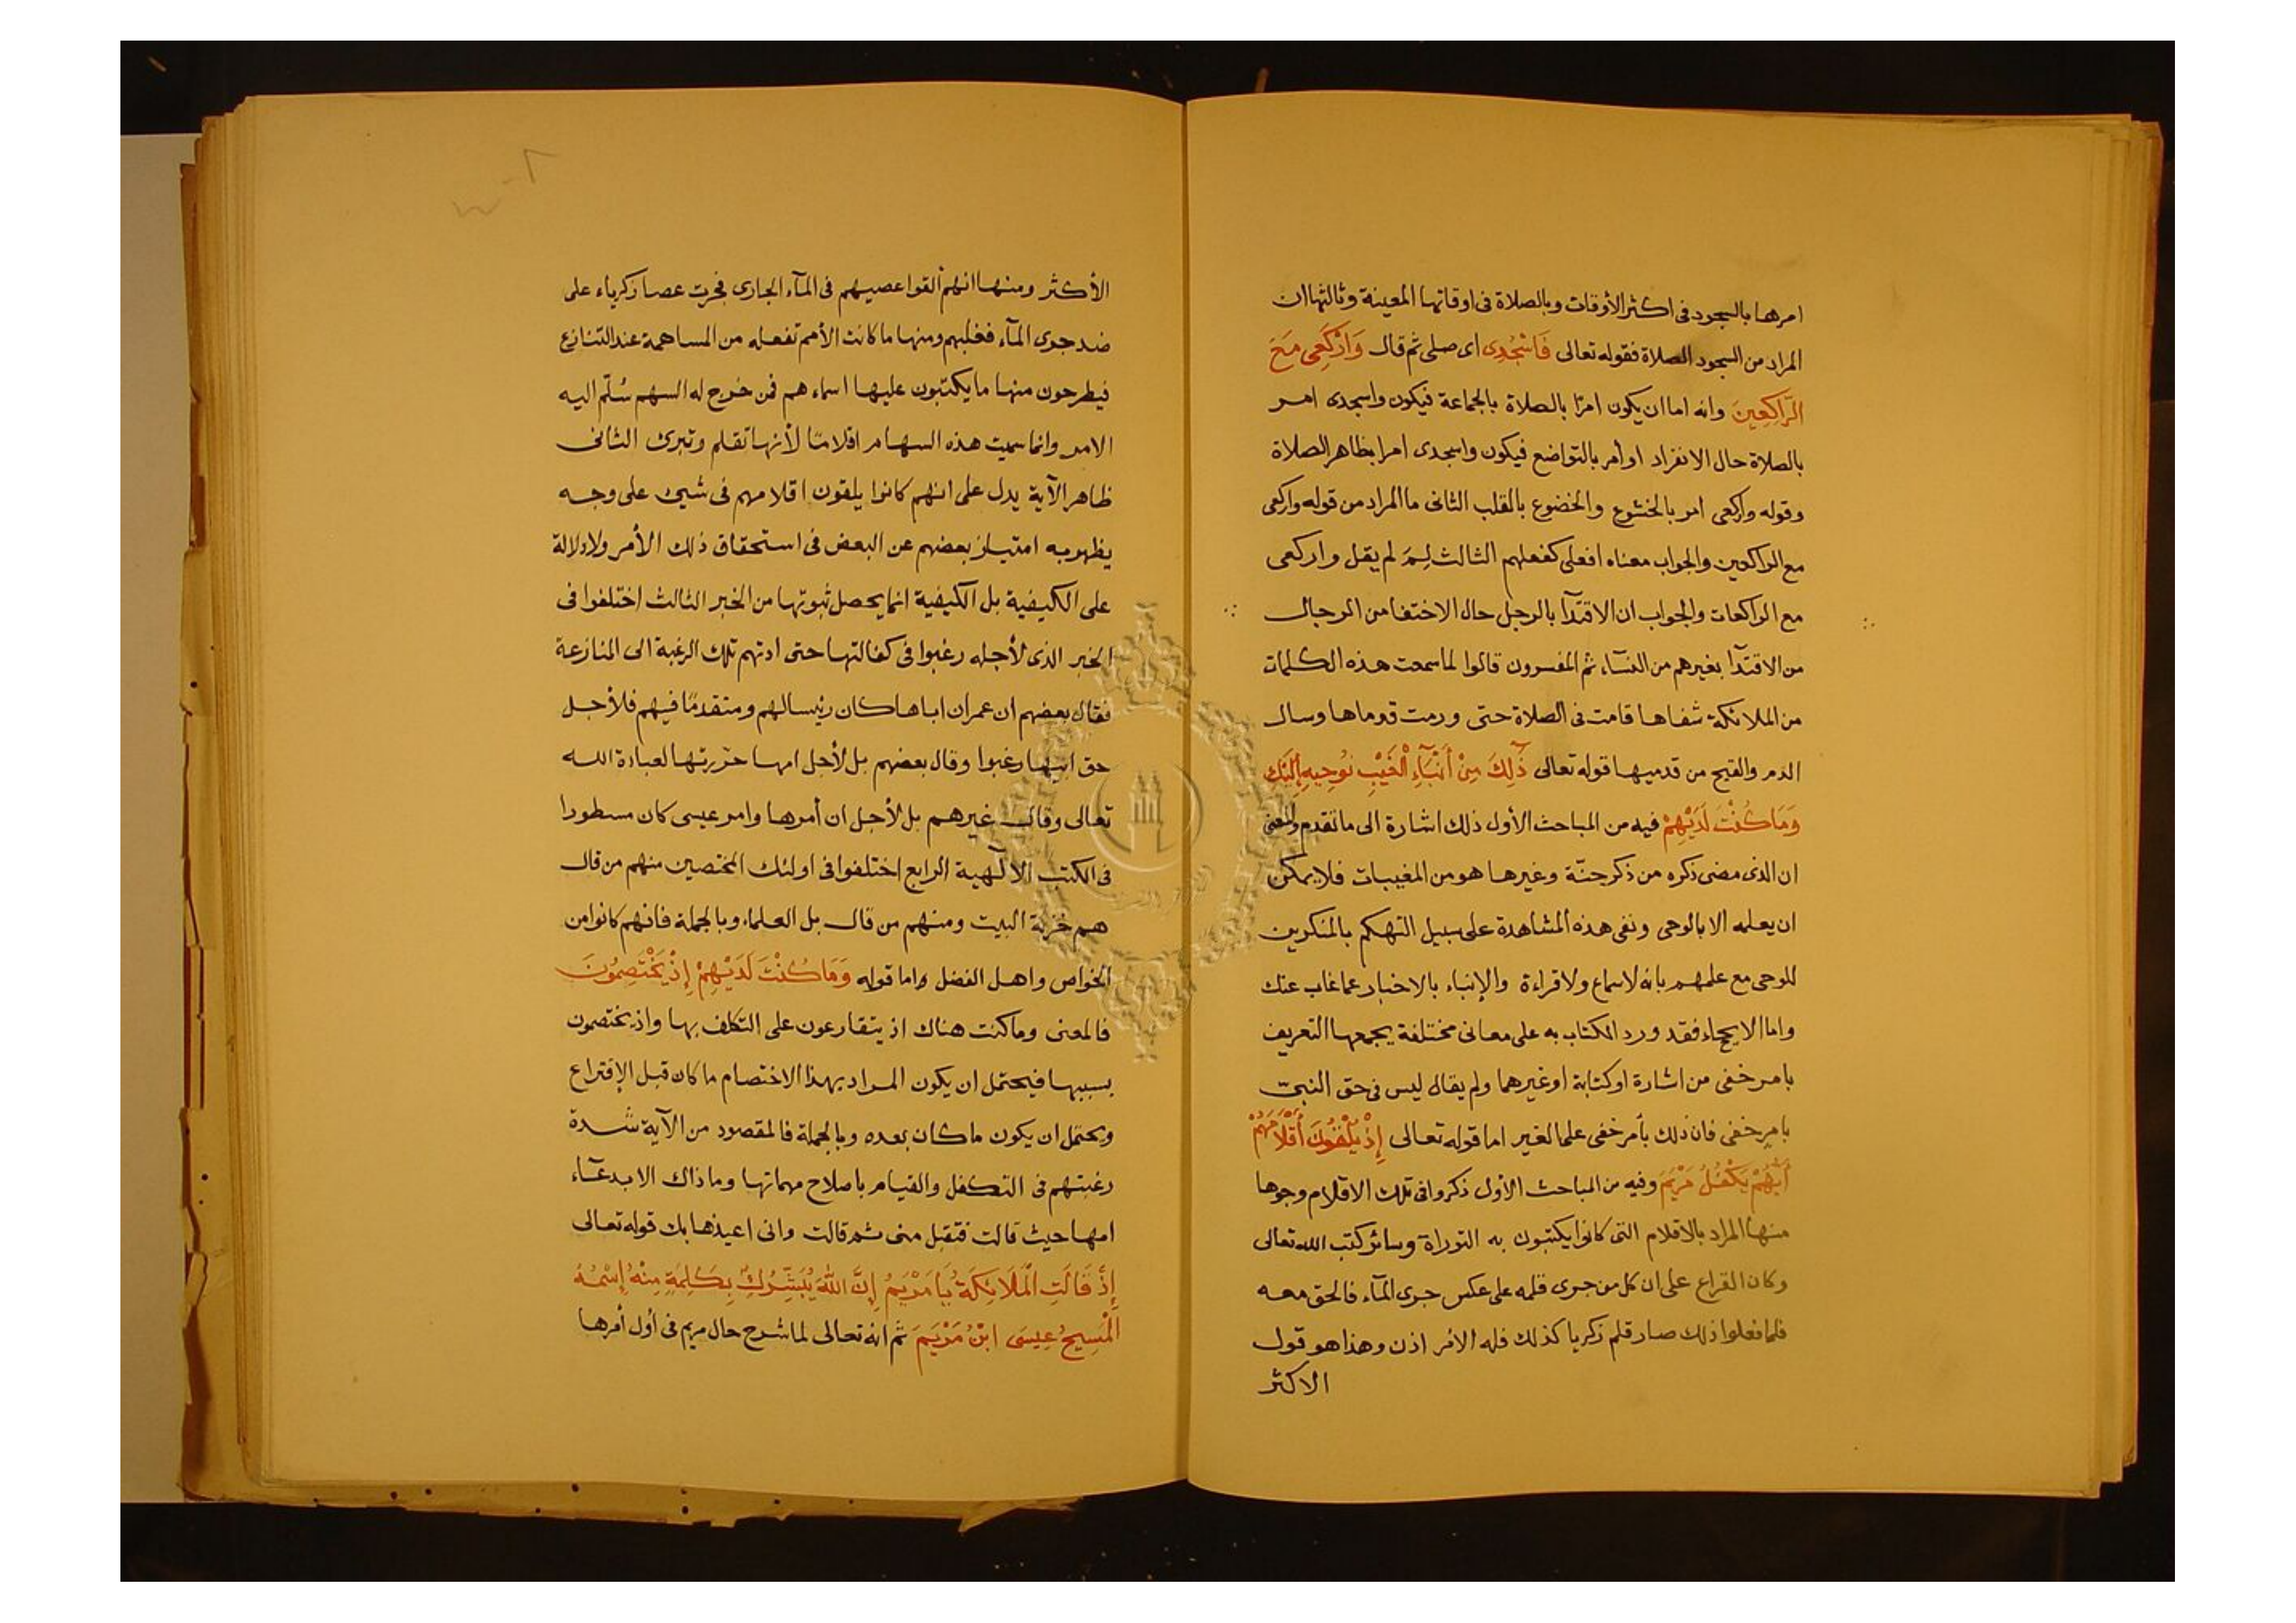 امرها بالسجود فى اكثر الأوقات وبالصلاة فى اوقاتها المعينة وثالثها ان
المراد من السجود الصلاة فقوله تعالى فَاسْجُدِى اى صلى ثم قال وَارْكَعِى مَعَ
الرَّاكِعِينَ وانه اما ان يكون امرًا بالصلاة بالجماعة فيكون واسجدى امر
بالصلاة حال الانفراد او أمر بالتواضع فيكون واسجدى امرا بظاهر الصلاة
وقوله واركعى امر بالخشوع والخضوع بالقلب الثانى ما المراد من قوله واركعى
مع الراكعين والجواب معناه افعلى كفعلهم الثالث لِمَ لم يقل واركعى
مع الراكعات والجواب ان الاقتدآ بالرجل حال الاختفا من الرجال
من الاقتدآ بغيرهم من النسآء ثم المفسرون قالوا لما سمعت هذه الكلمات
من الملائكة شفاها قامت فى الصلاة حتى ورمت قدماها وسال
الدم والقيح من قدميها قوله تعالى ذٰلِكَ مِنْ أَنْبَآءِ الْغَيْبِ نُوحِيهِ إِلَيْكَ
وَمَا كُنْتَ لَدَيْهِمْ فيه من المباحث الأول ذلك اشارة الى ما تقدم والمعنى
ان الذى مضى ذكره من ذكر حنّة وغيرها هو من المغيبات فلا يمكن
ان يعلمه الا بالوحى ونفى هذه المشاهدة على سبيل التهكم بالمنكرين
للوحى مع علمهم بانه لا سماع ولا قراءة والإنباء بالاخبار عما غاب عنك
واما الايحاء فقد ورد الكتاب به على معانى مختلفة يجمعها التعريف
بامر خفى من اشارة او كتابة او غيرهما ولم يقال ليس فى حق النبىّ
بامر خفى فان ذلك بأمر خفى على الغير اما قوله تعالى إِذْ يُلْقُونَ أَقْلَامَهُمْ
أَيُّهُمْ يَكْفُلُ مَرْيَمَ وفيه من المباحث الأول ذكروا فى تلك الاقلام وجوها
منها المراد بالاقلام التى كانوا يكتبون به التوراة وسائر كتب الله تعالى
وكان القراع على ان كل من جرى قلمه على عكس جرى المآء فالحق معه
فلما فعلوا ذلك صار قلم زكريا كذلك فله الامر اذن وهذا هو قول
الاكثر
الأكثر ومنها انهم ألقوا عصيهم فى المآء الجارى فجرت عصا زكرياء على
ضد جرى المآء فغلبهم ومنها ما كانت الأمم تفعله من المساهمة عند التنازع
فيطرحون منها ما يكتبون عليها اسماءهم فمن خرج له السهم سُلّم اليه
الامر وانما سميت هذه السهام اقلامًا لأنها تقلم وتبرى الثانى
ظاهر الآية يدل على انهم كانوا يلقون اقلامهم فى شيئ على وجه
يظهر به امتياز بعضهم عن البعض فى استحقاق ذلك الأمر ولا دلالة
على الكيفية بل الكيفية انما يحصل ثبوتها من الخبر الثالث اختلفوا فى
الخبر الذى لأجله رغبوا فى كفالتها حتى ادتهم تلك الرغبة الى المنازعة
فقال بعضهم ان عمران اباها كان رئيسا لهم ومتقدمًا فيهم فلأجل
حق ابيها رغبوا وقال بعضهم بل لأجل امها حررتها لعبادة الله
تعالى وقال غيرهم بل لأجل ان أمرها وامر عيسى كان مسطورا
فى الكتب الالهية الرابع اختلفوا فى اولئك المختصين منهم من قال
هم خزنة البيت ومنهم من قال بل العلماء وبالجملة فانهم كانوا من
الخواص واهل الفضل واما قوله وَمَا كُنْتَ لَدَيْهِمْ إِذْ يَخْتَصِمُونَ
فالمعنى وما كنت هناك اذ يتقارعون على التكلف بها واذ يختصمون
بسببها فيحتمل ان يكون المراد بهذا الاختصام ما كان قبل الإقتراع
ويحتمل ان يكون ما كان بعده وبالجملة فالمقصود من الآية شدة
رغبتهم فى التكفل والقيام باصلاح مهماتها وما ذاك الا بدعآء
امها حيث قالت فتقبل منى ثم قالت وانى اعيذها بك قوله تعالى
إِذْ قَالَتِ الْمَلَائِكَةُ يَا مَرْيَمُ إِنَّ اللّٰهَ يُبَشِّرُكِ بِكَلِمَةٍ مِنْهُ إِسْمُهُ
الْمَسِيحُ عِيسَى ابْنُ مَرْيَمَ ثم انه تعالى لما شرح حال مريم فى أول أمرها